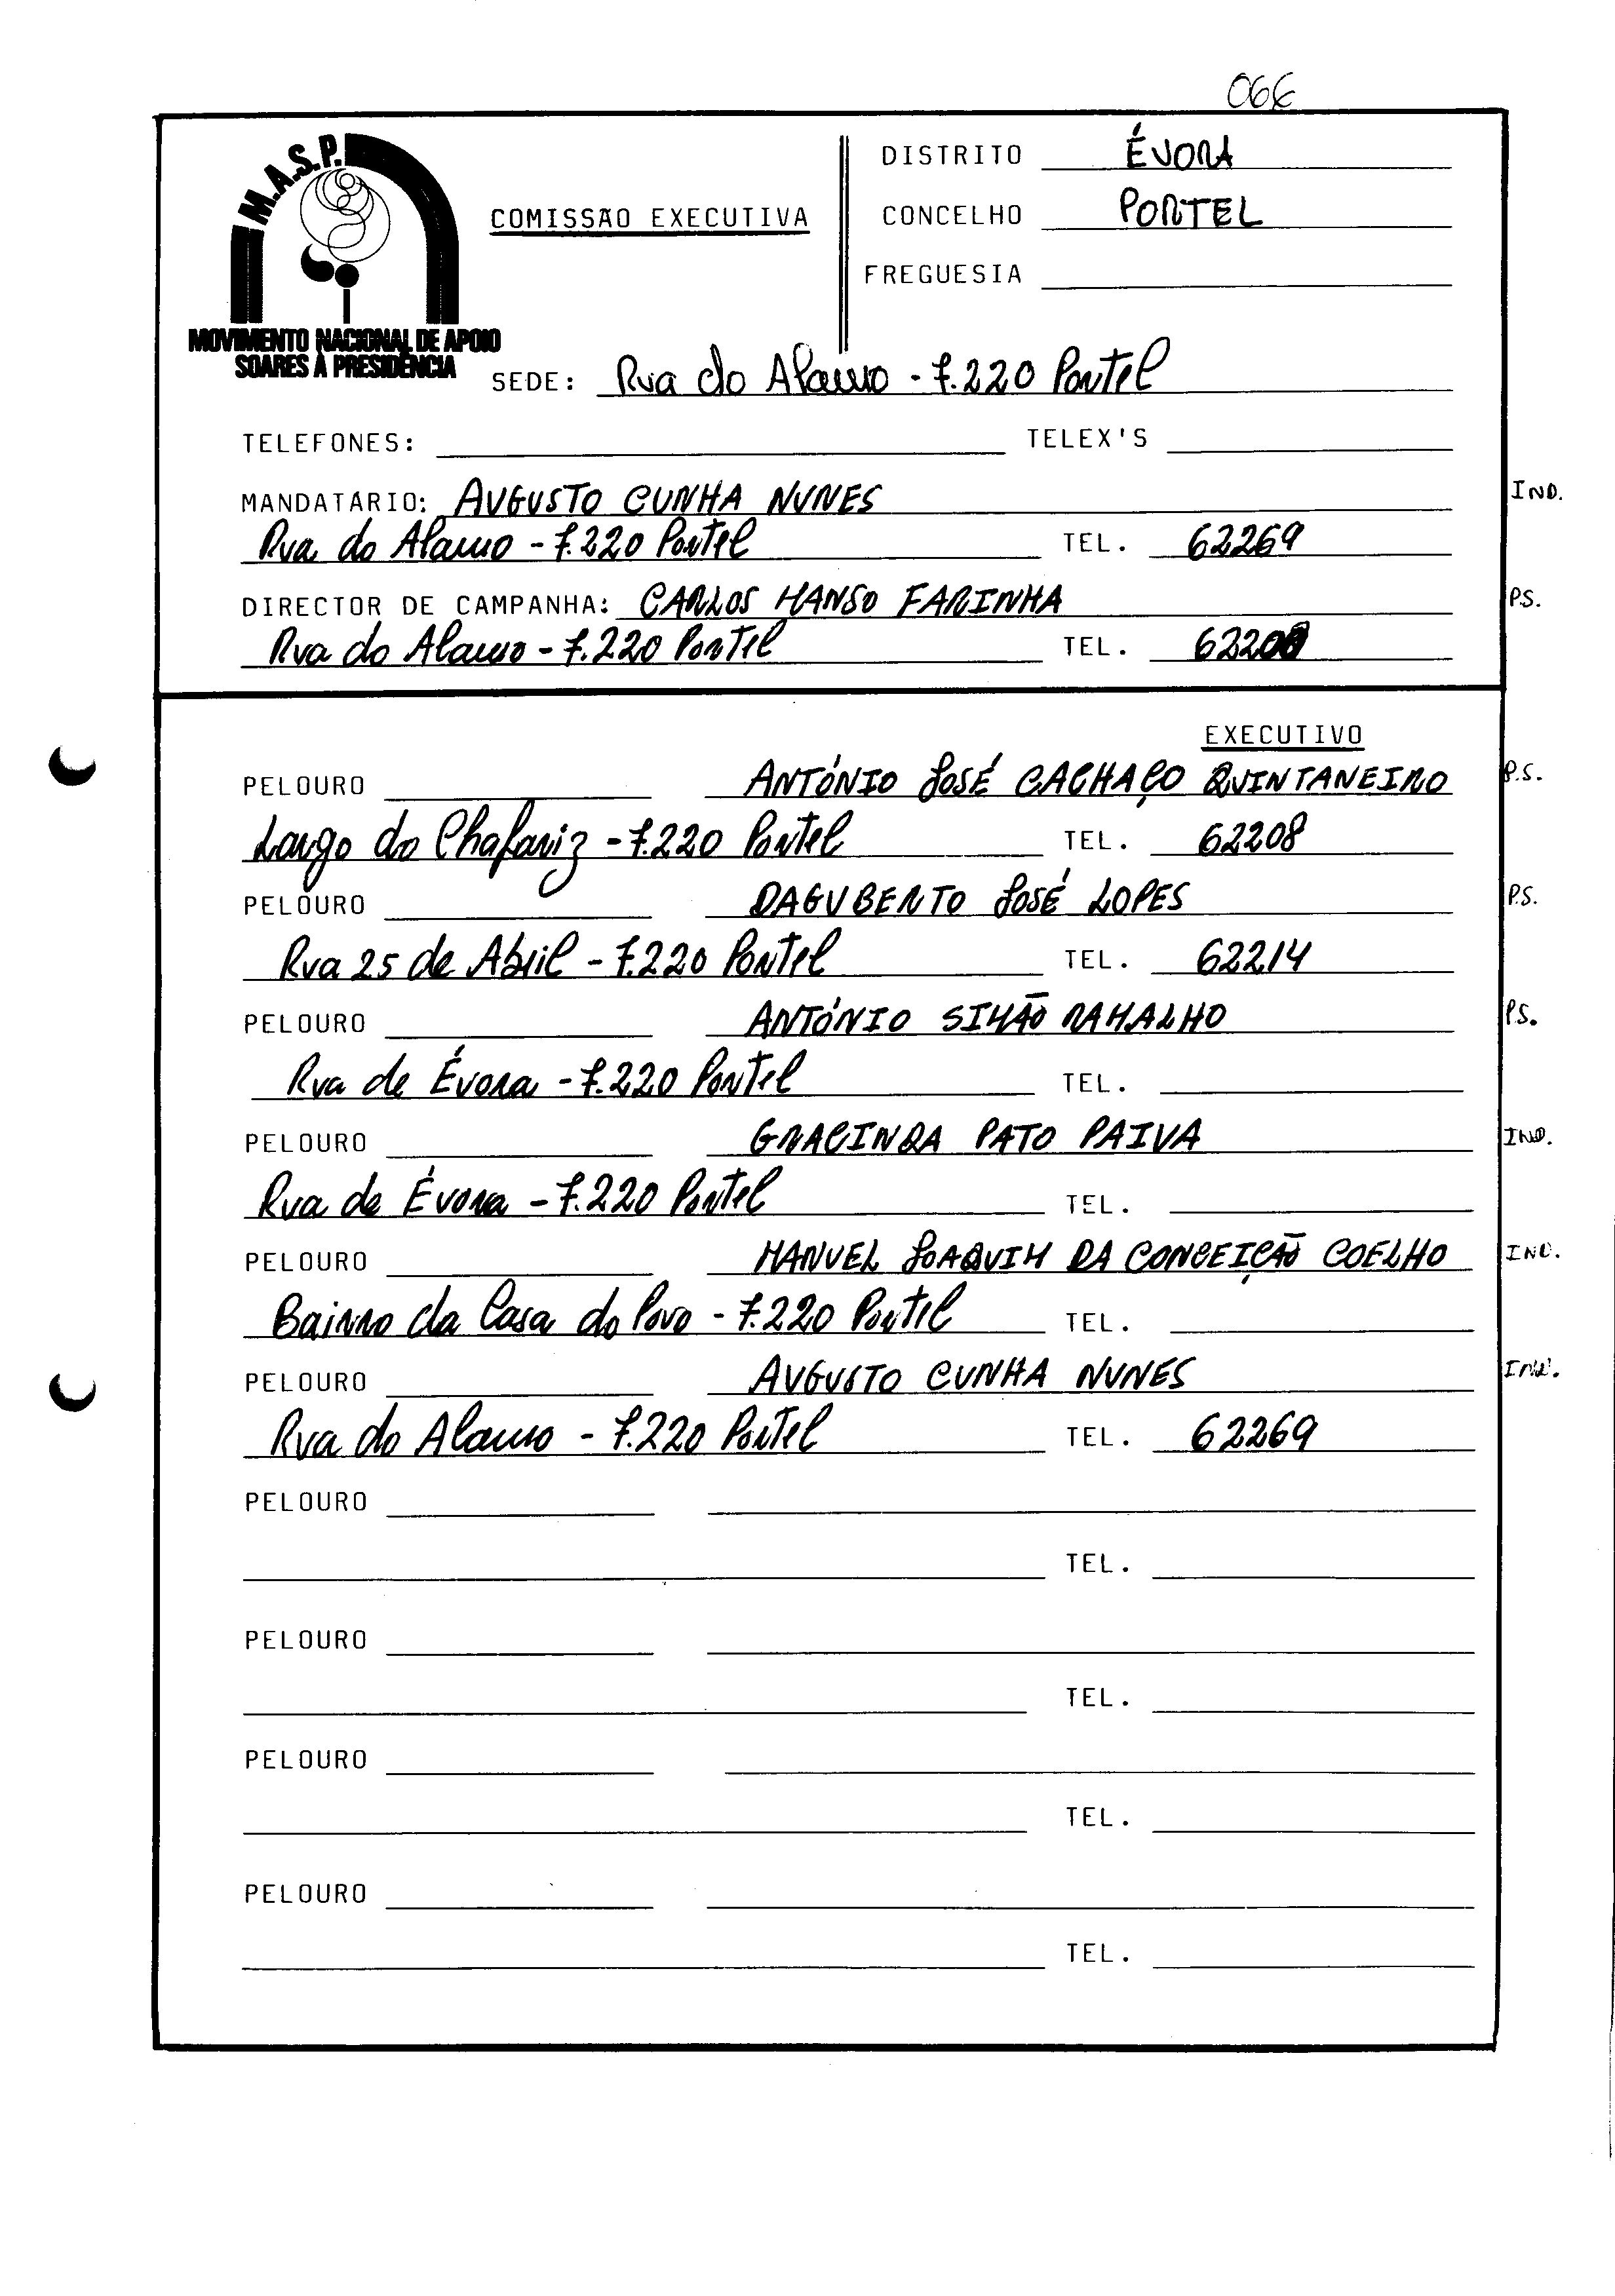 066
M.A.S.P.
MOVIMENTO NACIONAL DE APOIO
SOARES À PRESIDÊNCIA
COMISSÃO EXECUTIVA
DISTRITO ÉVORA
CONCELHO PORTEL
FREGUESIA
SEDE: Rua do Alamo - 7.220 Portel
TELEFONES: TELEX'S
MANDATÁRIO: AUGUSTO CUNHA NUNES IND.
Rua do Alamo - 7.220 Portel TEL. 62269
DIRECTOR DE CAMPANHA: CARLOS MANSO FARINHA P.S.
Rua do Alamo - 7.220 Portel TEL.
EXECUTIVO
PELOURO ANTÓNIO JOSÉ CACHAÇO QUINTANEIRO P.S.
Largo do Chafariz - 7.220 Portel TEL. 62208
PELOURO DAGUBERTO JOSÉ LOPES P.S.
Rua 25 de Abril - 7.220 Portel TEL. 62214
PELOURO ANTÓNIO SIMÃO RAMALHO P.S.
Rua de Évora - 7.220 Portel TEL.
PELOURO GRACINDA PATO PAIVA IND.
Rua de Évora - 7.220 Portel TEL.
PELOURO MANUEL JOAQUIM DA CONCEIÇÃO COELHO IND.
Bairro da Casa do Povo - 7.220 Portel TEL.
PELOURO AUGUSTO CUNHA NUNES IND.
Rua do Alamo - 7.220 Portel TEL. 62269
PELOURO
TEL.
PELOURO
TEL.
PELOURO
TEL.
PELOURO
TEL.